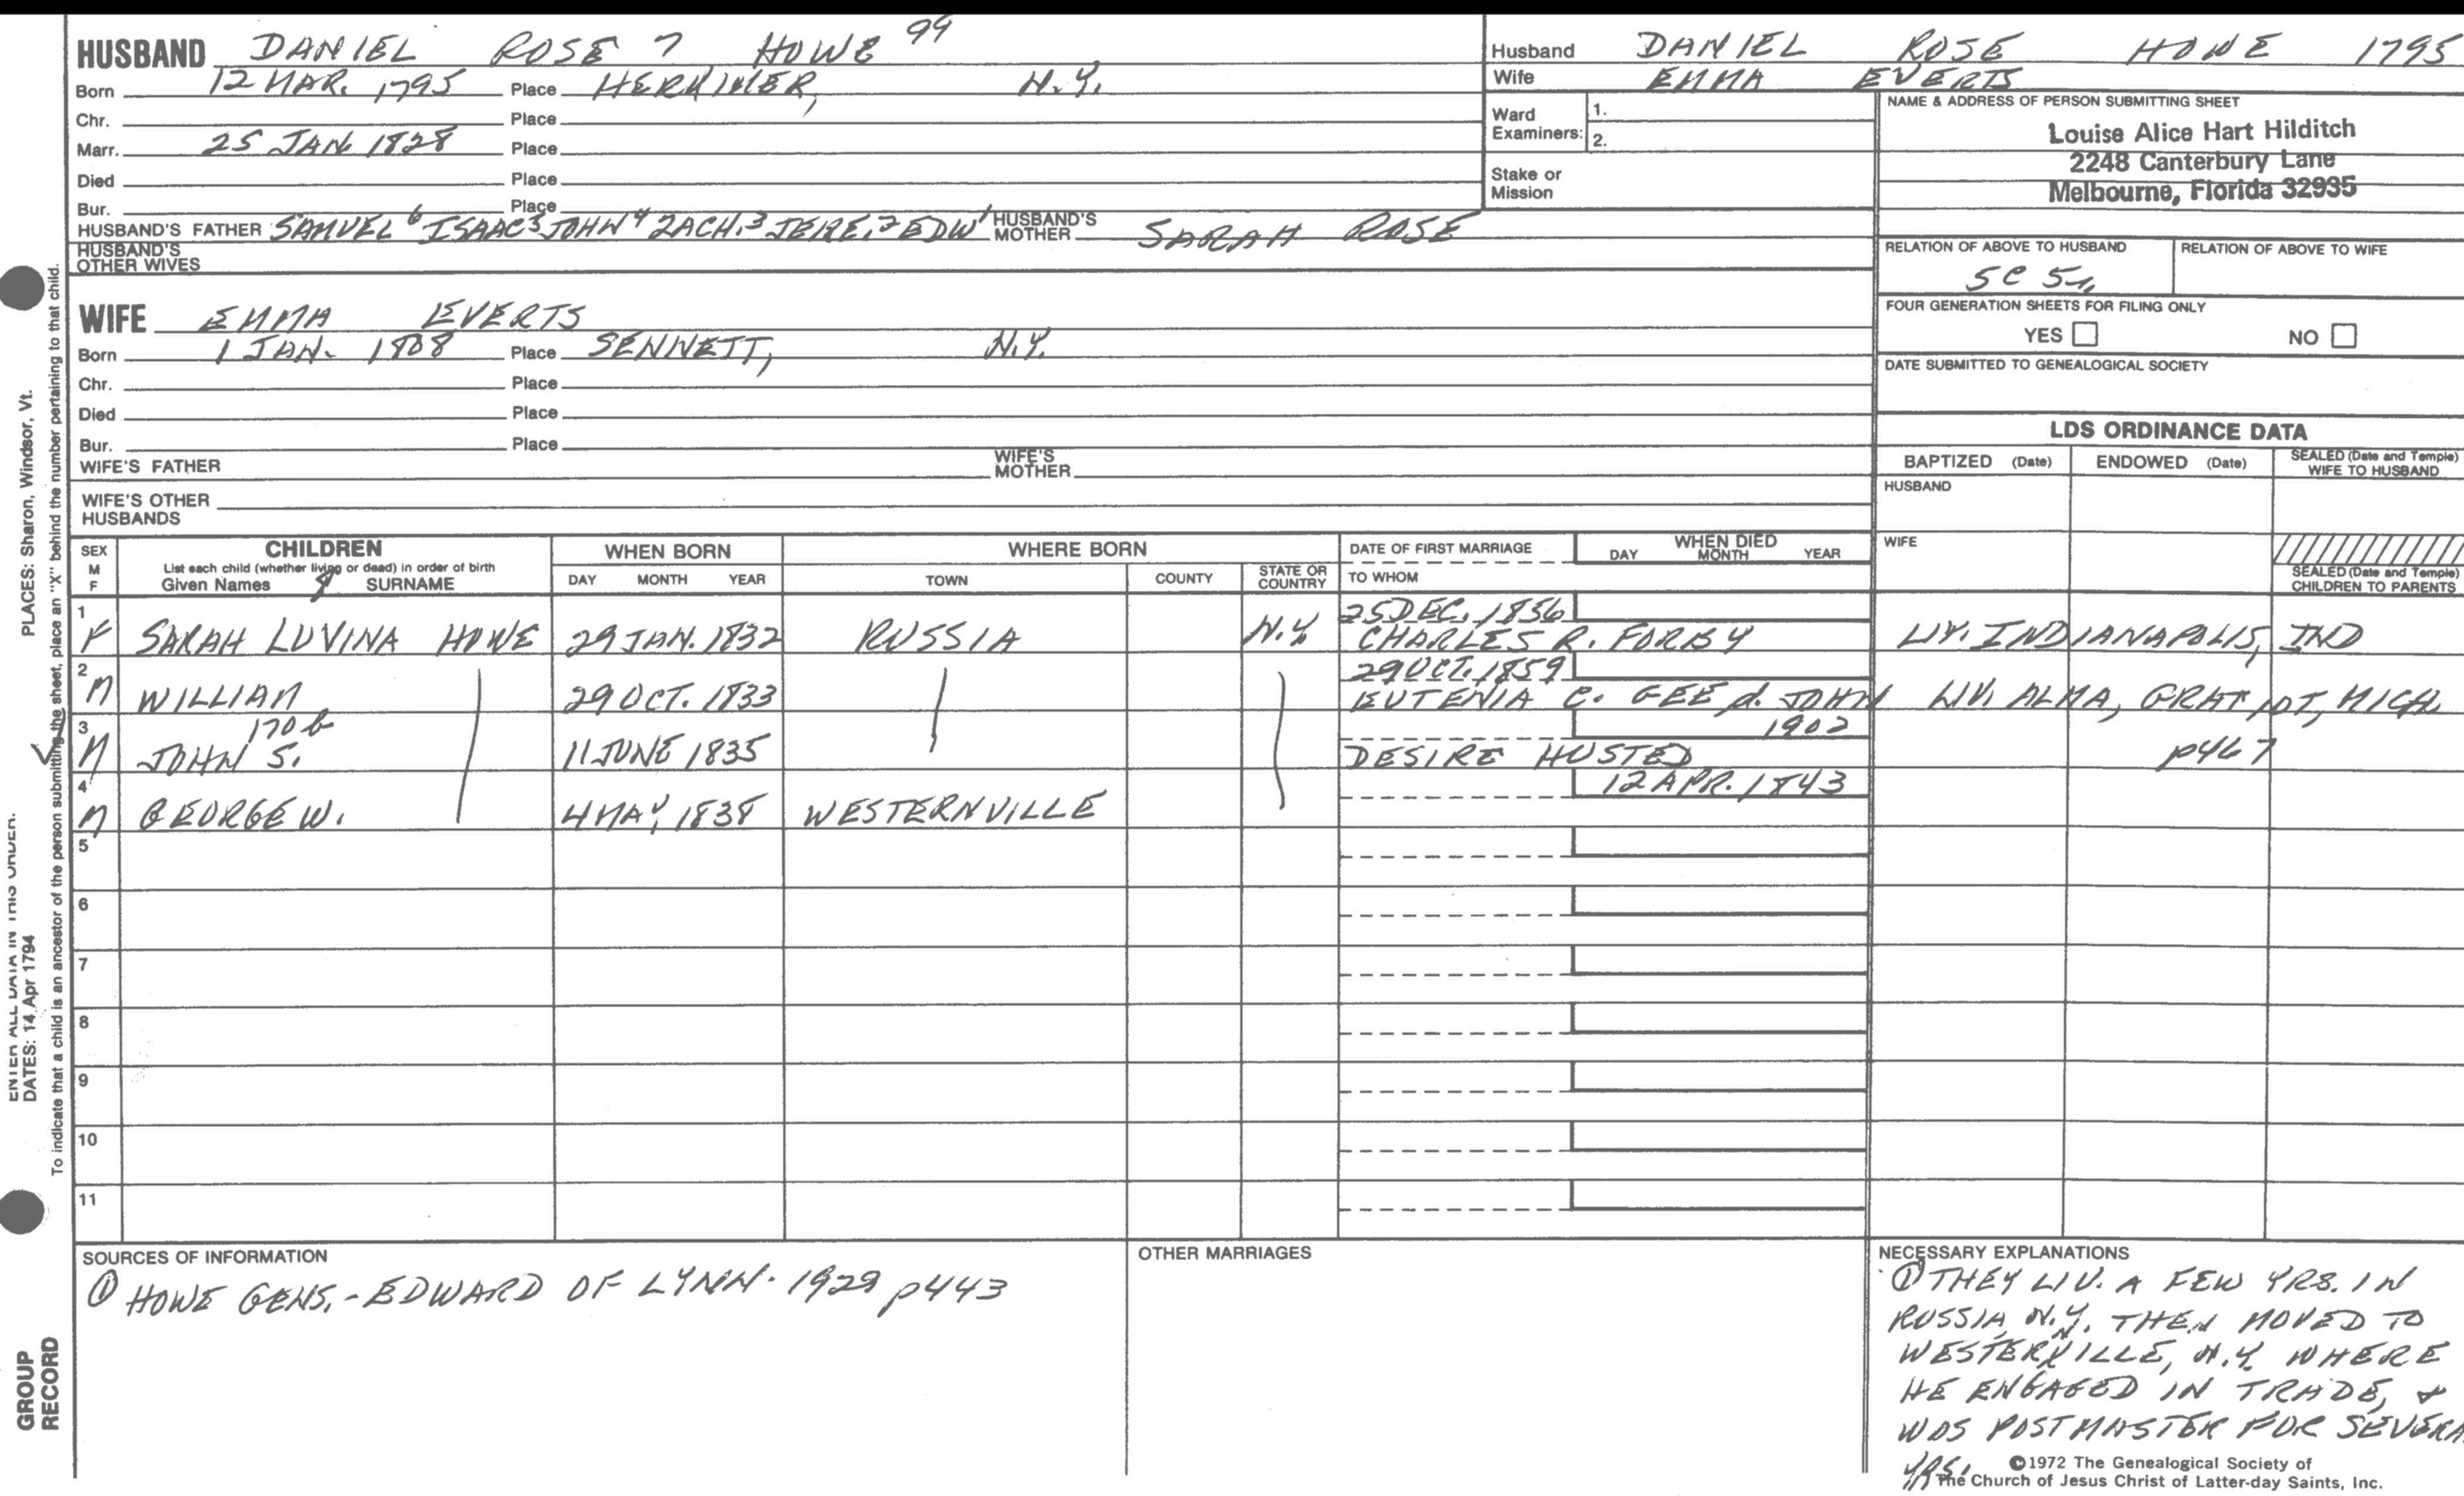 HUSBAND DANIEL ROSE 7 HOWE 99
Born 12 MAR. 1795 Place HERKIMER, N.Y.
Chr. Place
Marr. 25 JAN 1828 Place
Died Place
Bur. Place
HUSBAND'S FATHER SAMUEL 6 ISAAC 5 JOHN 4 ZACH. 3 JERE. 2 EDW 1 HUSBAND'S MOTHER SARAH ROSE
HUSBAND'S OTHER WIVES
WIFE EMMA EVERTS
Born 1 JAN. 1808 Place SENNETT, N.Y.
Chr. Place
Died Place
Bur. Place
WIFE'S FATHER WIFE'S MOTHER
WIFE'S OTHER HUSBANDS
Husband DANIEL ROSE HOWE 1795
Wife EMMA EVERTS
Ward Examiners: 1.
2.
Stake or Mission
NAME & ADDRESS OF PERSON SUBMITTING SHEET
Louise Alice Hart Hilditch
2248 Canterbury Lane
Melbourne, Florida 32935
RELATION OF ABOVE TO HUSBAND RELATION OF ABOVE TO WIFE
5C 5
FOUR GENERATION SHEETS FOR FILING ONLY
YES NO
DATE SUBMITTED TO GENEALOGICAL SOCIETY
LDS ORDINANCE DATA
BAPTIZED (Date) ENDOWED (Date) SEALED (Date and Temple) WIFE TO HUSBAND
HUSBAND
WIFE
SEALED (Date and Temple) CHILDREN TO PARENTS
SEX M F CHILDREN WHEN BORN WHERE BORN DATE OF FIRST MARRIAGE WHEN DIED
List each child (whether living or dead) in order of birth
Given Names SURNAME DAY MONTH YEAR TOWN COUNTY STATE OR COUNTRY TO WHOM DAY MONTH YEAR
8
1 25 DEC. 1856
F SARAH LUVINA HOWE 29 JAN. 1832 RUSSIA N.Y. CHARLES R. FORBY LIV. INDIANAPOLIS, IND
2 29 OCT. 1859
M WILLIAM 29 OCT. 1833 EUTENIA C. GEE d. JOHN LIV. ALMA, GRATIOT, MICH.
3 170b 1902
M JOHN S. 11 JUNE 1835 DESIRE HUSTED p467
4 12 APR. 1843
M GEORGE W. 4 MAY 1838 WESTERNVILLE
5
6
7
8
9
10
11
SOURCES OF INFORMATION
① HOWE GENS. - EDWARD OF LYNN. 1929 p443
OTHER MARRIAGES
NECESSARY EXPLANATIONS
① THEY LIV. A FEW YRS. IN
RUSSIA, N.Y. THEN MOVED TO
WESTERNVILLE, N.Y. WHERE
HE ENGAGED IN TRADE, &
WAS POSTMASTER FOR SEVERA
YRS.
©1972 The Genealogical Society of
The Church of Jesus Christ of Latter-day Saints, Inc.
ENTER ALL DATA IN THIS ORDER.
DATES: 14 Apr 1794
PLACES: Sharon, Windsor, Vt.
To indicate that a child is an ancestor of the person submitting the sheet, place an "X" behind the number pertaining to that child.
GROUP
RECORD